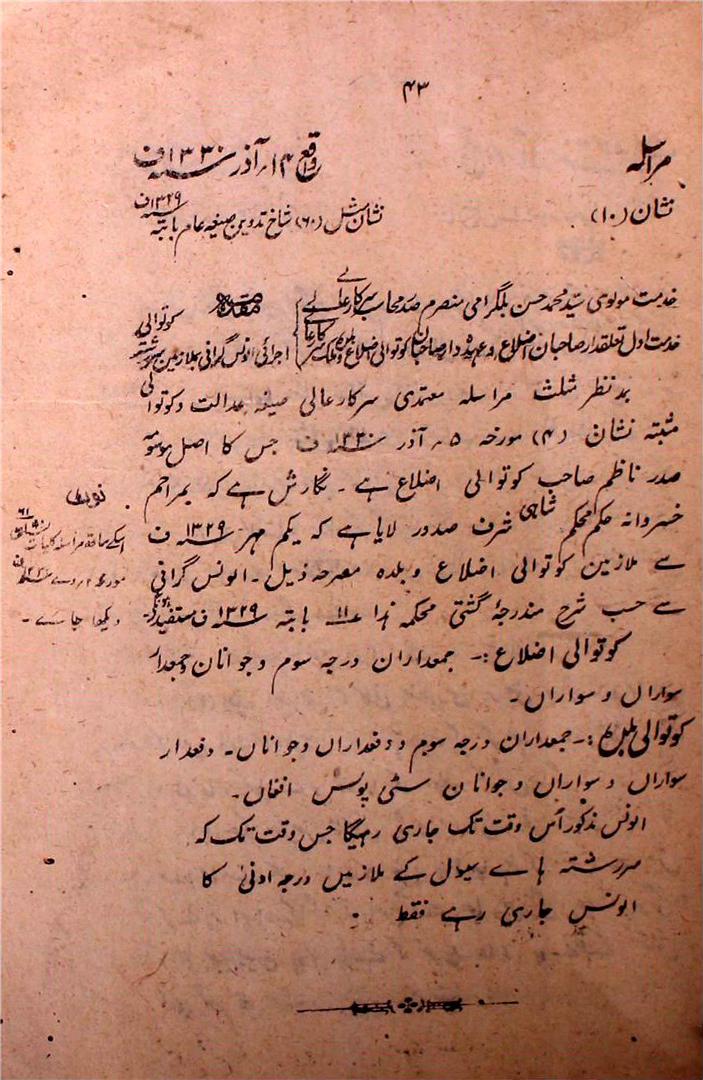 ۴۳
مراسلہ واقع ۱۴؍ آذر سنہ ۱۳۳۰ ف
نشان (۱۰) نشان مثل (۶۰) شاخ تدوین صیغہ عام بابتہ سنہ ۱۳۲۹ ف
خدمت مولوی سید محمد حسن بلگرامی منصرم صدر محاسب سرکار عالی
خدمت اول تعلقدار صاحبان اضلاع و عہدہ دار صاحبان کوتوالی اضلاع و بلدہ سرکار عالی
مقدمہ
اجرائی الونس گرانی ملازمین سررشتہ کوتوالی
بہ نظر مثلث مراسلہ معتمدی سرکار عالی صیغہ عدالت و کوتوالی
مثبتہ نشان (۴) مورخہ ۵؍ آذر سنہ ۱۳۳۰ ف جس کا اصل موسومہ
صدر ناظم صاحب کوتوالی اضلاع ہے ۔ نگارش ہے کہ بمراحم
خسروانہ حکم محکم شاہی شرف صدور لایا ہے کہ یکم مہر سنہ ۱۳۲۹ ف
سے ملازمین کوتوالی اضلاع و بلدہ مصرحہ ذیل ۔ الونس گرانی
سے حسب شرح مندرجۂ گشتی محکمہ ہذا ۱۱ بابتہ سنہ ۱۳۲۹ ف مستفید ہونگے
نوٹ
اسکے ساتھ مراسلہ کلیات
دیکھا جائے ۔
کوتوالی اضلاع :۔ جمعداران درجہ سوم و جوانان و جمعدار
سواران و سواران ۔
کوتوالی بلدہ :۔ جمعداران درجہ سوم و دفعداران و جوانان ۔ دفعدار
سواران و سواران و جوانان سٹی پولس افغان ۔
الونس مذکور اُس وقت تک جاری رہیگا جس وقت تک کہ
سررشتہ ہاے سیول کے ملازمین درجہ ادنیٰ کا
الونس جاری رہے فقط ۔